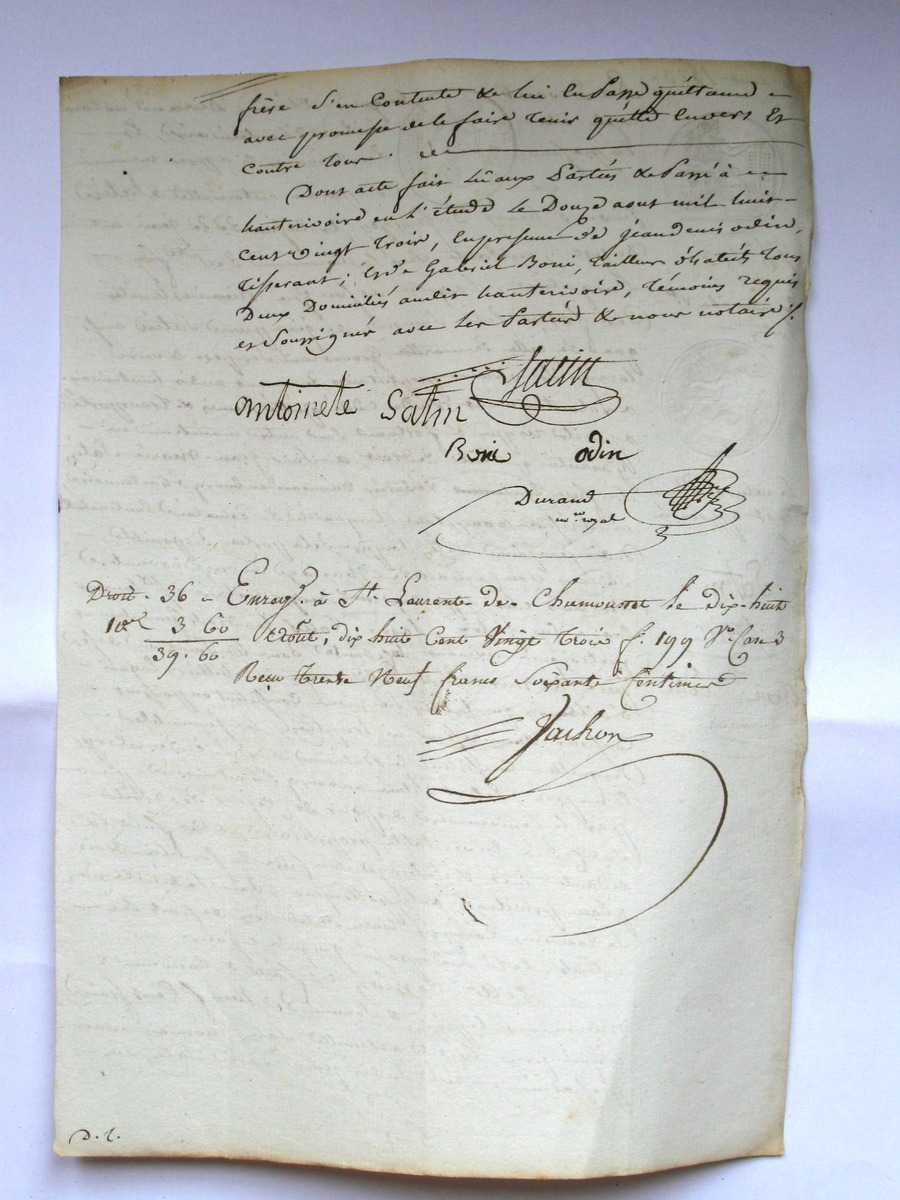 frère s'en Contente & lui En Passe quittance
avec promesse de le faire tenir quitte Envers Et
Contre tous.
Dont acte fait Lû aux Parties & Passé à
hauterivoire en l'étude le Douze aout mil huit
Cent vingt trois, En presence de jean denis odin,
tisserant; Et de Gabriel Boni, tailleur d'habits tous
Deux Domiciliés audit hauterivoire, témoins requis
et Soussignés avec les Parties & nous notaire /.
Satin
antoinete Satin
Boni odin
Durand
no.re royal
Droit . 36 " Enreg. à St. Laurent-de-Chamousset le dix-huit
10e 3 60 août, dix huit Cent Vingt trois f. 199 Vo. Case 3
39.60
Reçu trente Neuf francs Soixante Centimes
Jachon
D. L.